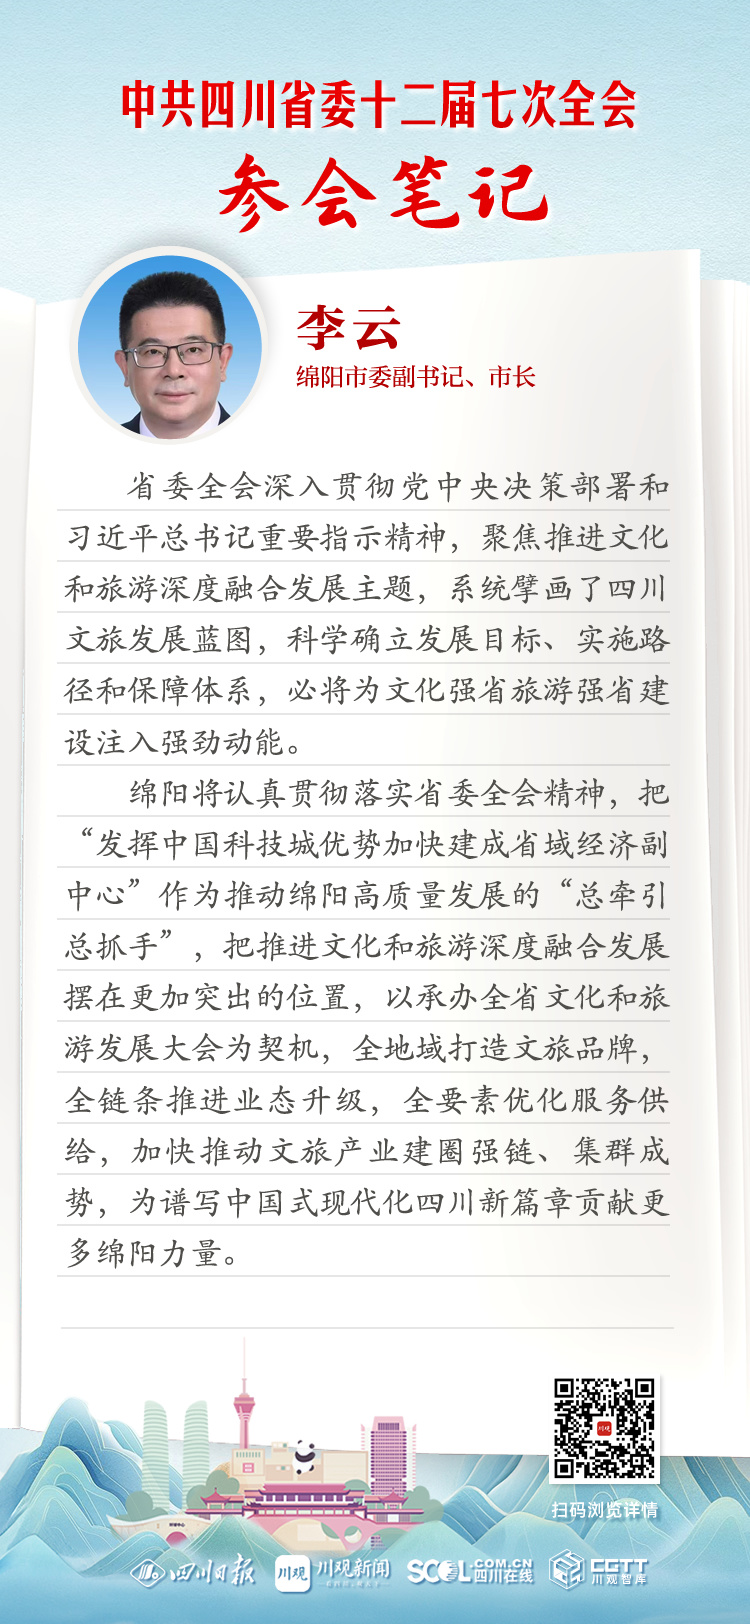 中共四川省委十二届七次全会
参会笔记
李云
绵阳市委副书记、市长
省委全会深入贯彻党中央决策部署和
习近平总书记重要指示精神，聚焦推进文化
和旅游深度融合发展主题，系统擘画了四川
文旅发展蓝图，科学确立发展目标、实施路
径和保障体系，必将为文化强省旅游强省建
设注入强劲动能。
绵阳将认真贯彻落实省委全会精神，把
“发挥中国科技城优势加快建成省域经济副
中心”作为推动绵阳高质量发展的“总牵引
总抓手”，把推进文化和旅游深度融合发展
摆在更加突出的位置，以承办全省文化和旅
游发展大会为契机，全地域打造文旅品牌，
全链条推进业态升级，全要素优化服务供
给，加快推动文旅产业建圈强链、集群成
势，为谱写中国式现代化四川新篇章贡献更
多绵阳力量。
川观
扫码浏览详情
四川日报
川观 川观新闻
SCOL.COM.CN
四川在线
CGTT
川观智库